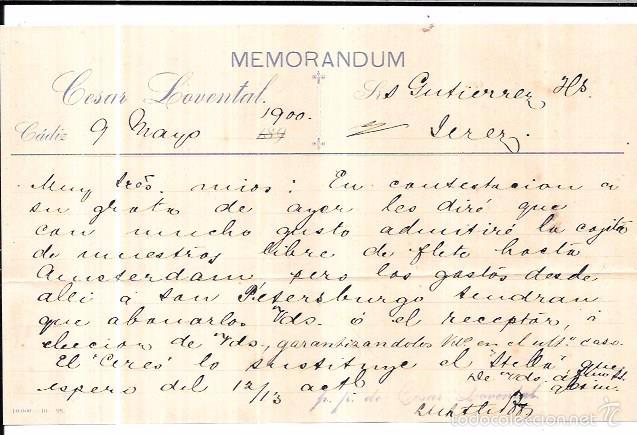 MEMORANDUM
Cesar Lovental.
Srs Gutierrez Hs.
Cádiz 9 Mayo 1900.
Jerez.
Muy Srês. mios: En contestacion a
su grata de ayer les diré que
con mucho gusto admitiré la cajita
de muestras libre de flete hasta
Amsterdam pero los gastos desde
alli á San Petersburgo tendran
que abonarlos Vds. ó el receptor, á
eleccion de Vds., garantizandolos Vds. en el ultº caso.
El "Ceres" lo sustituye el "Stella" que
espero del 12/13 actl
De Vds. afmo. S.S.
q.b.s.m.
p. p. de Cesar Lovental.